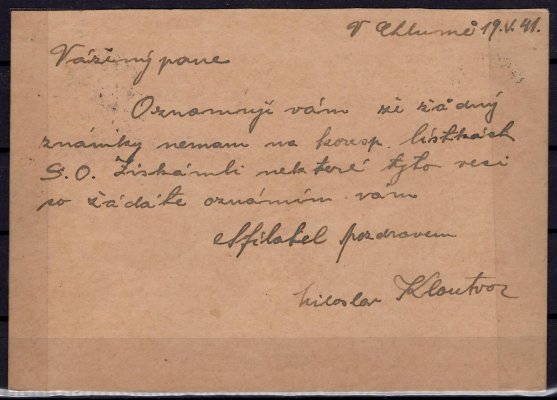 V Chlumě 19.V.41.
Vážený pane
Oznamuji vám že žádný
známky nemam na koresp. lístkách
S.O. Získámli nekteré tyto veci
co žádáte oznámím vám
S filatel pozdravem
Miloslav Kloutvor